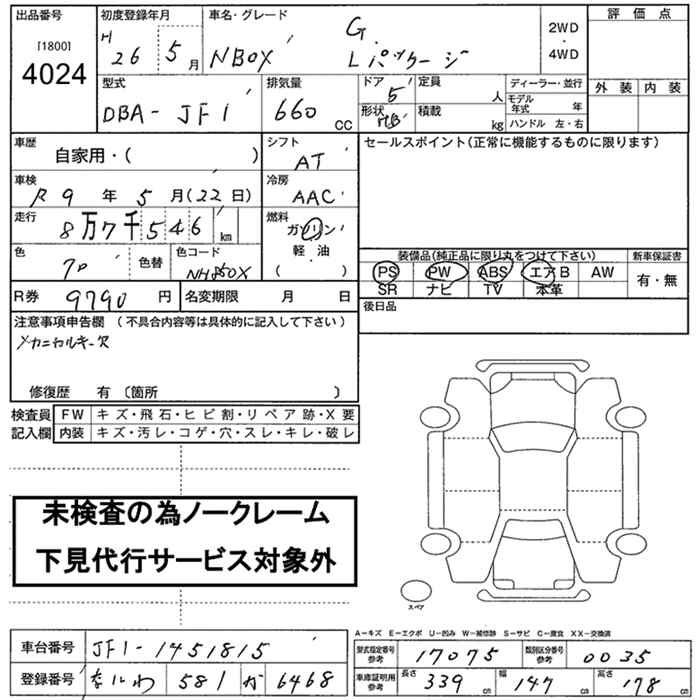 出品番号
［1800］
4024
初度登録年月
H 26 5 月
車名・グレード
NBOX
G
Lパッケージ
2WD
・
4WD
評価点
外装 内装
型式
DBA-JF1
排気量
660 CC
ドア
5
形状
HB
定員
人
積載
kg
ディーラー・並行
モデル
年式 年
ハンドル 左・右
車歴
自家用・( )
シフト
AT
セールスポイント(正常に機能するものに限ります)
車検
R 9 年 5 月(22日)
冷房
AAC
走行
8万7千546 km
燃料
ガソリン
・
軽油
( )
色
色替
色コード
装備品(純正品に限り丸をつけて下さい)
PS PW ABS エアB AW
SR ナビ TV 本革
新車保証書
有・無
R券 9790 円
名変期限 月 日
後日品
注意事項申告欄 (不具合内容等は具体的に記入して下さい)
メカニカルキー欠
修復歴 有 〔箇所 〕
検査員
記入欄
FW キズ・飛石・ヒビ割・リペア跡・X要
内装 キズ・汚レ・コゲ・穴・スレ・キレ・破レ
未検査の為ノークレーム
下見代行サービス対象外
スペア
A-キズ E-エクボ U-凹み W-補修跡 S-サビ C-腐食 XX-交換済
車台番号 JF1-1451815
登録番号 なにわ 581 か 6468
型式指定番号
参考
17075
類別区分番号
参考
0035
車庫証明用
参考
長さ 339 cm 幅 147 cm 高さ 178 cm